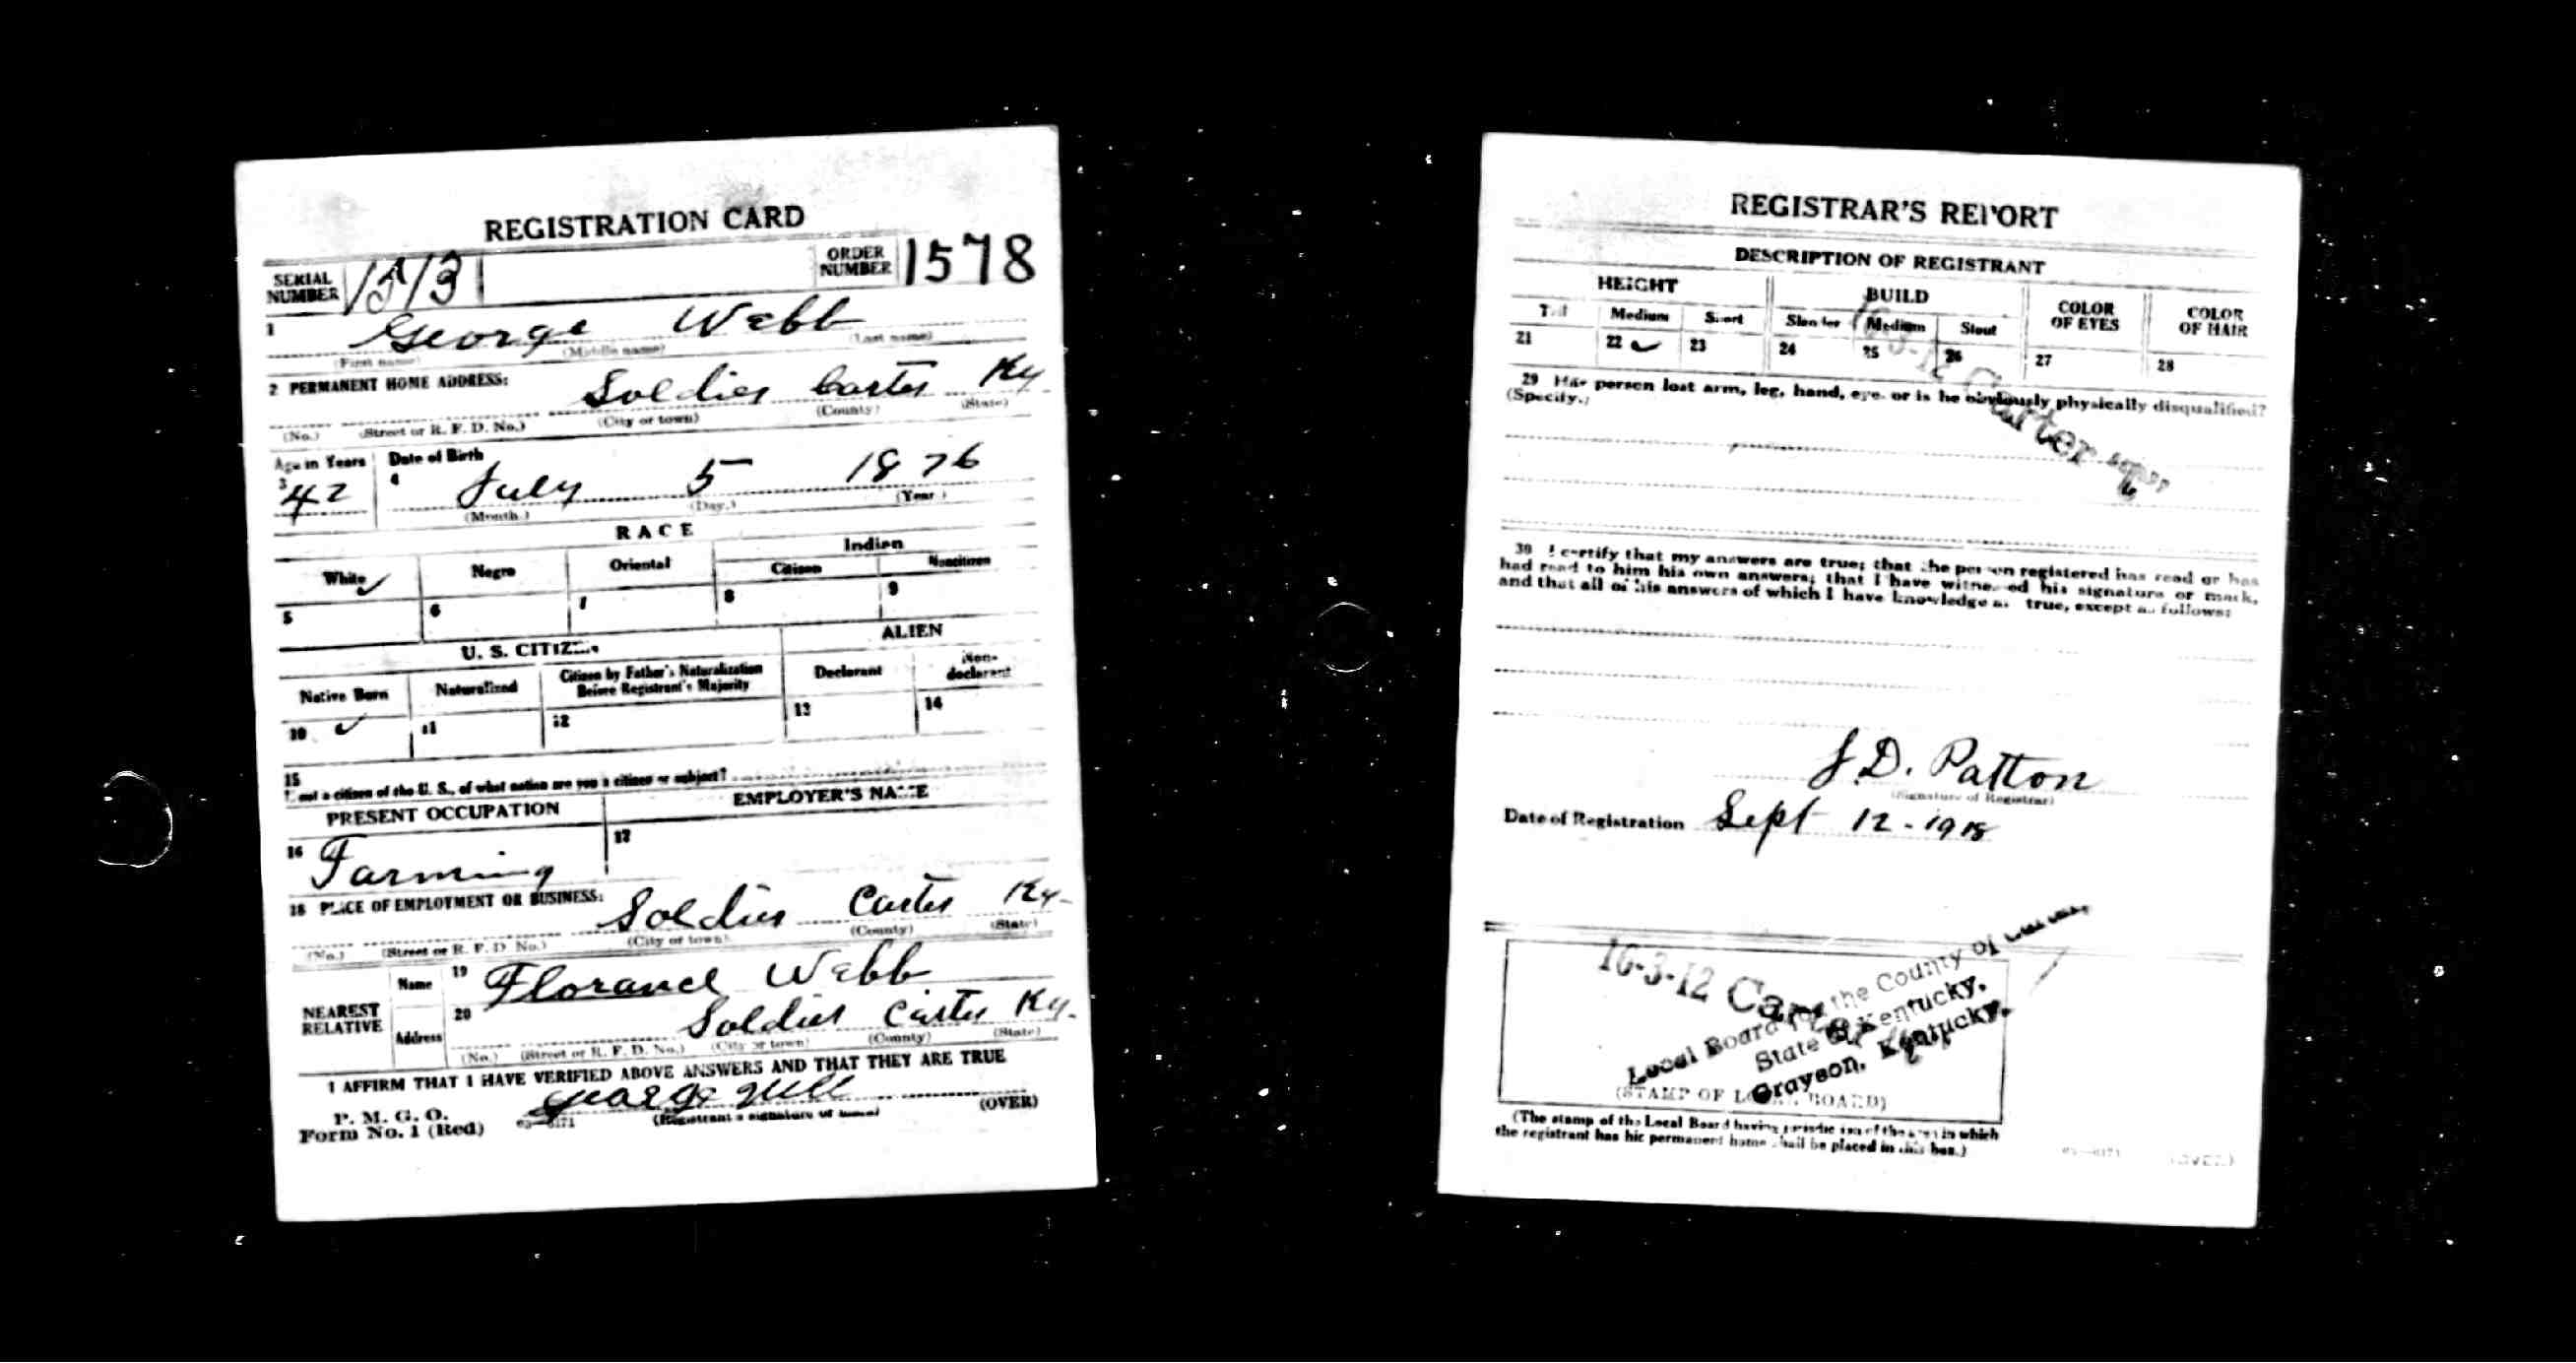 REGISTRATION CARD
SERIAL NUMBER 1513 ORDER NUMBER 1578
1 George Webb
(First name) (Middle name) (Last name)
2 PERMANENT HOME ADDRESS:
Soldier Carter Ky
(No.) (Street or R. F. D. No.) (City or town) (County) (State)
Age in Years Date of Birth
3 42 4 July 5 1876
(Month.) (Day.) (Year.)
RACE
White ✓ Negro Oriental Indian
Citizen Noncitizen
5 6 7 8 9
U. S. CITIZEN ALIEN
Native Born Naturalized Citizen by Father's Naturalization Before Registrant's Majority Declarant Non-declarant
10 ✓ 11 12 13 14
15
If not a citizen of the U. S., of what nation are you a citizen or subject?
PRESENT OCCUPATION EMPLOYER'S NAME
16 Farming 17
18 PLACE OF EMPLOYMENT OR BUSINESS:
Soldier Carter Ky.
(No.) (Street or R. F. D. No.) (City or town) (County) (State)
NEAREST RELATIVE
Name 19 Florance Webb
Address 20 Soldier Carter Ky.
(No.) (Street or R. F. D. No.) (City or town) (County) (State)
I AFFIRM THAT I HAVE VERIFIED ABOVE ANSWERS AND THAT THEY ARE TRUE
P. M. G. O.
Form No. 1 (Red) 03—6171 George (Registrant's signature or mark) (OVER)
REGISTRAR'S REPORT
DESCRIPTION OF REGISTRANT
HEIGHT BUILD COLOR OF EYES COLOR OF HAIR
Tall Medium Short Slender Medium Stout
21 22 ✓ 23 24 25 26 27 28
16-3-12 Carter "C"
29 Has person lost arm, leg, hand, eye, or is he obviously physically disqualified?
(Specify.)
30 I certify that my answers are true; that the person registered has read or has
had read to him his own answers; that I have witnessed his signature or mark,
and that all of his answers of which I have knowledge are true, except as follows:
J. D. Patton
(Signature of Registrar)
Date of Registration Sept 12 - 1918
16-3-12 Carter
Local Board for the County of
State of Kentucky,
Grayson, Kentucky.
(STAMP OF LOCAL BOARD)
(The stamp of the Local Board having jurisdiction of the area in which
the registrant has his permanent home shall be placed in this box.)
03—6171 (OVER)